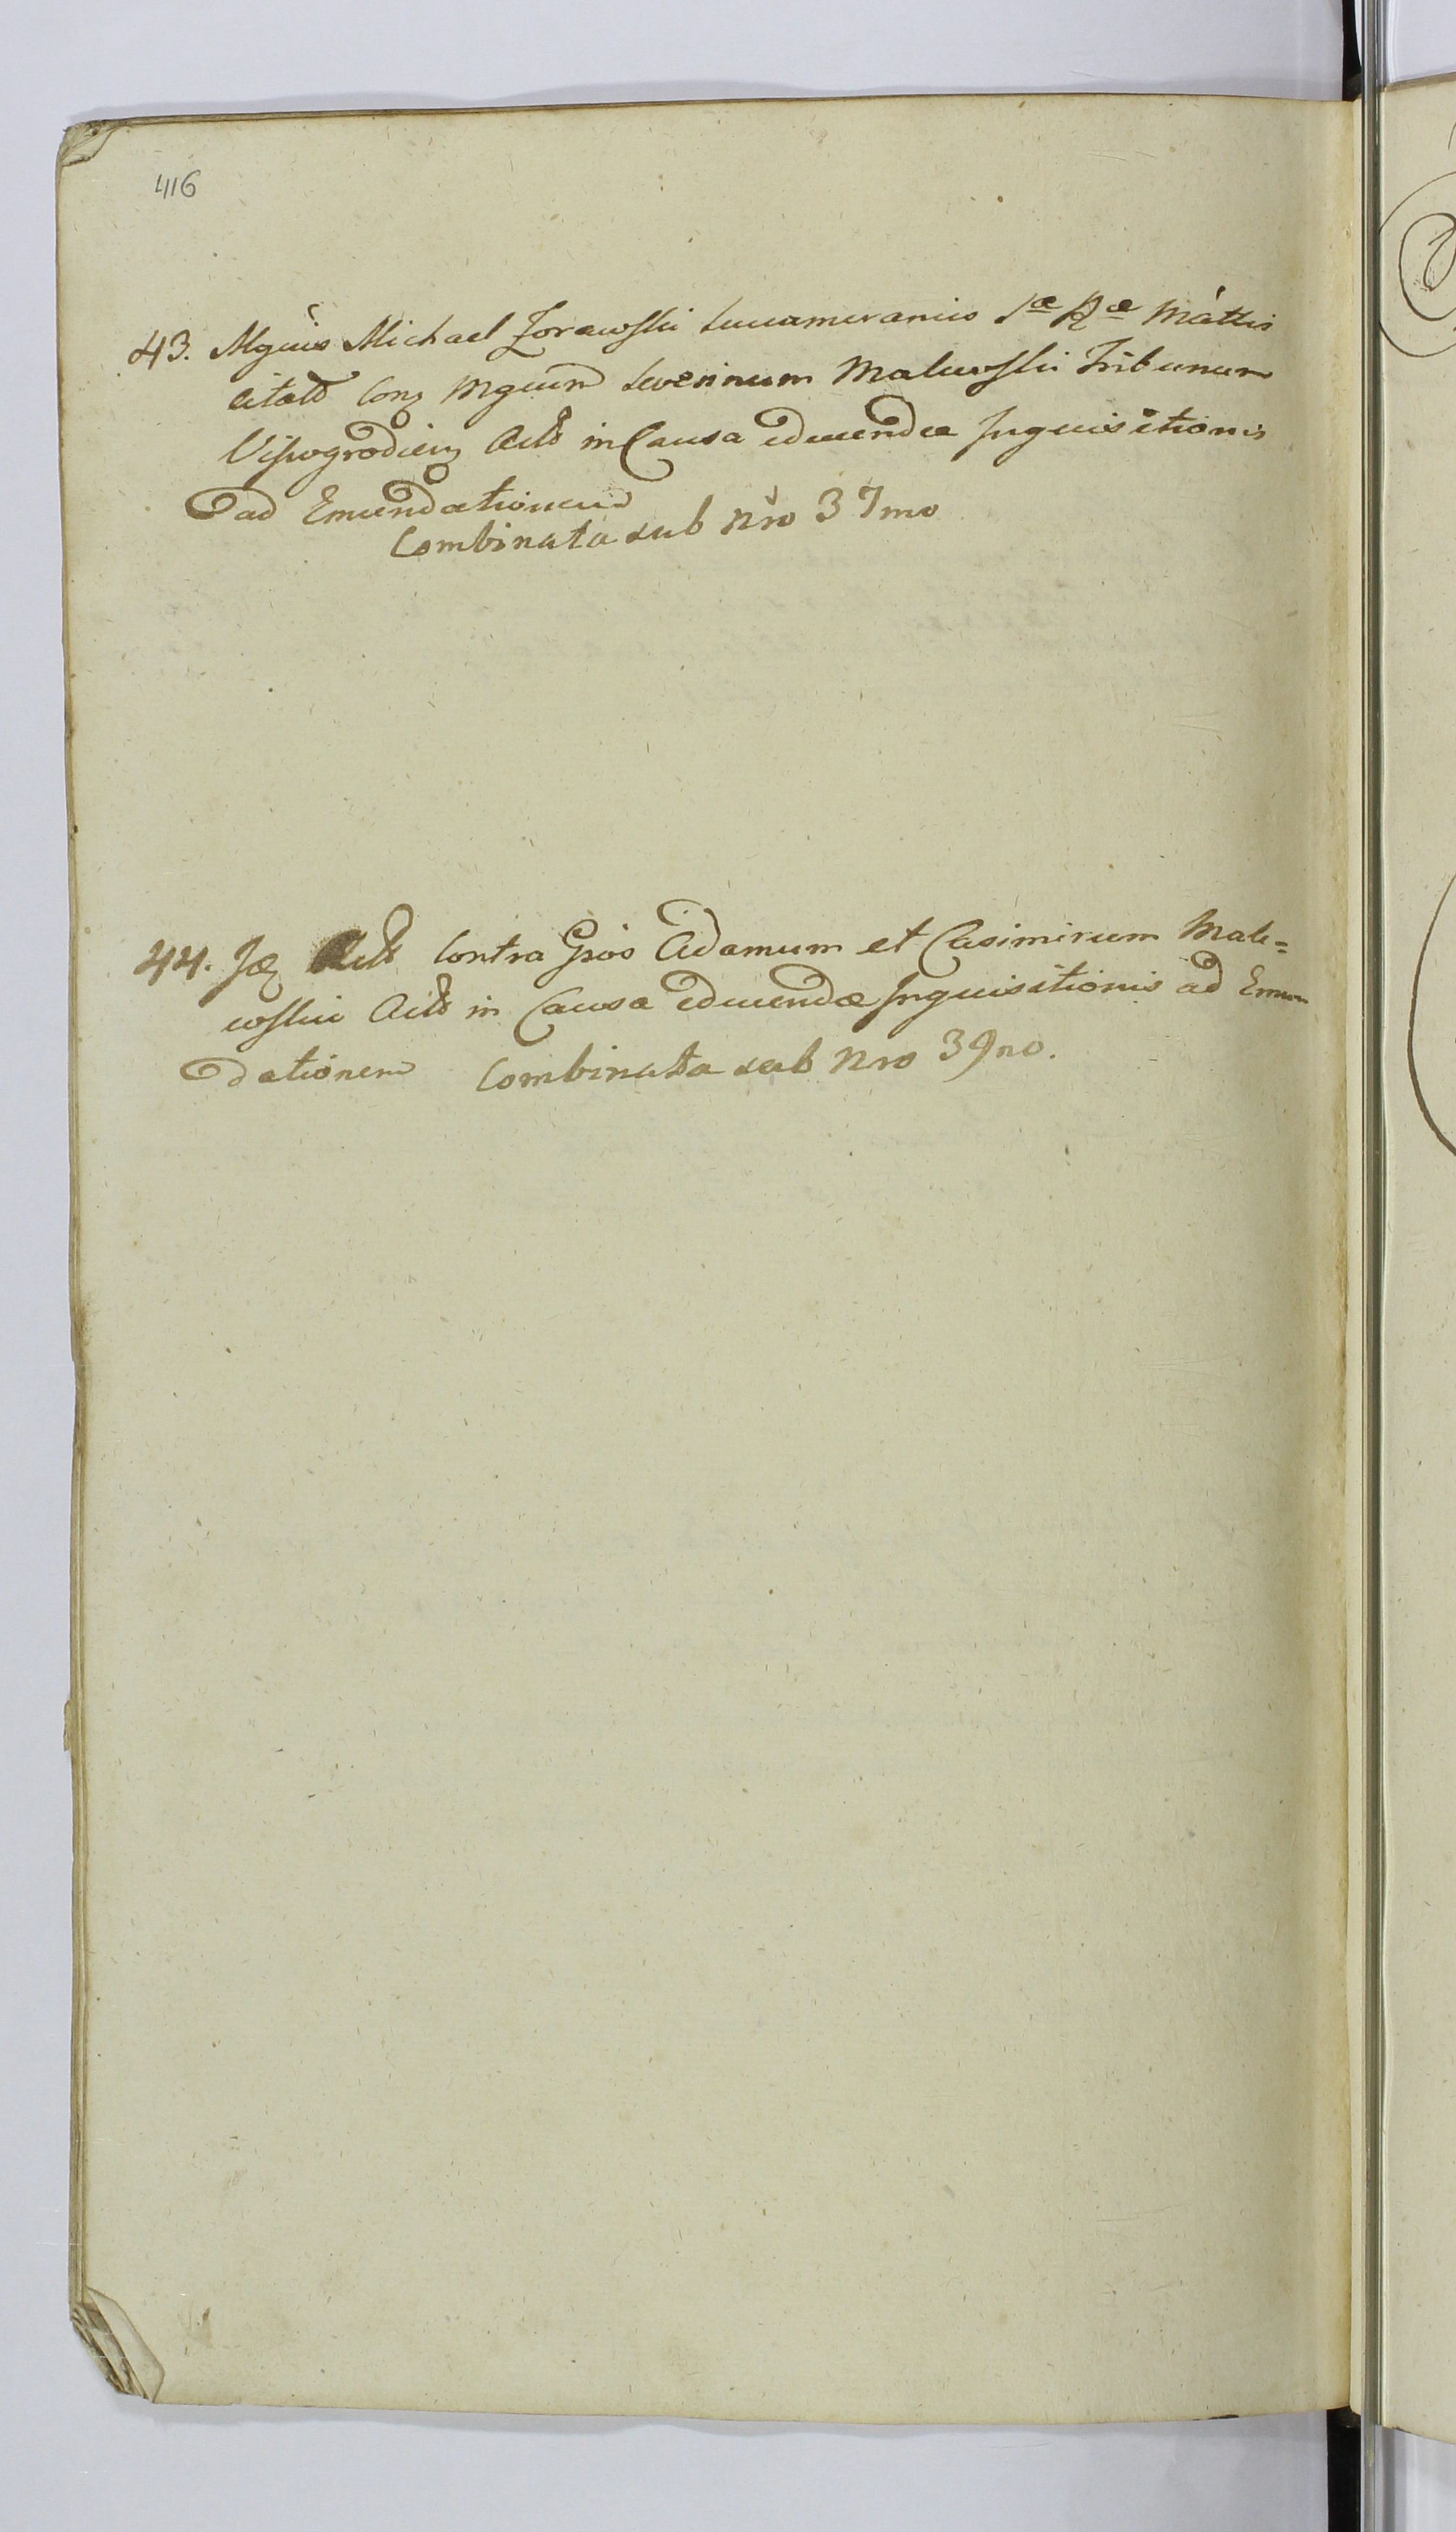 416
43. Mgcus Michael Zorawski Succamerarius Sæ Ræ Mattis
citatt Conq Mgcum Severinum Malewski Tribunum
Vissogrodien Citt in Causa educendæ Inquisitionis
ad Emundationem
Combinata sub Nro 37mo
44. Idq Citt Contra Gsos Adamum et Casimirum Male=
wskie Citt in Causa educendæ Inquisitionis ad Emun
dationem Combinata sub Nro 39no.